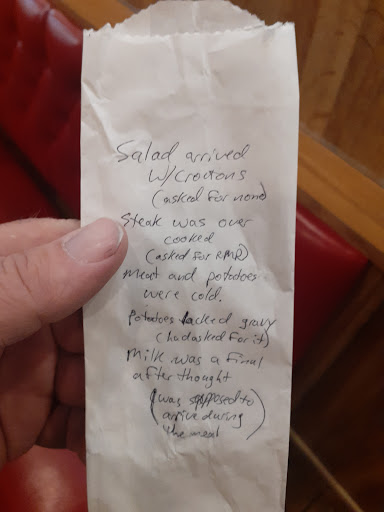 Salad arrived
w/Croutons
(asked for none)
Steak was over
cooked
(asked for RMR)
meat and potatoes
were cold.
Potatoes lacked gravy
(had asked for it)
Milk was a final
after thought
(was supposed to
arrive during
the meal)